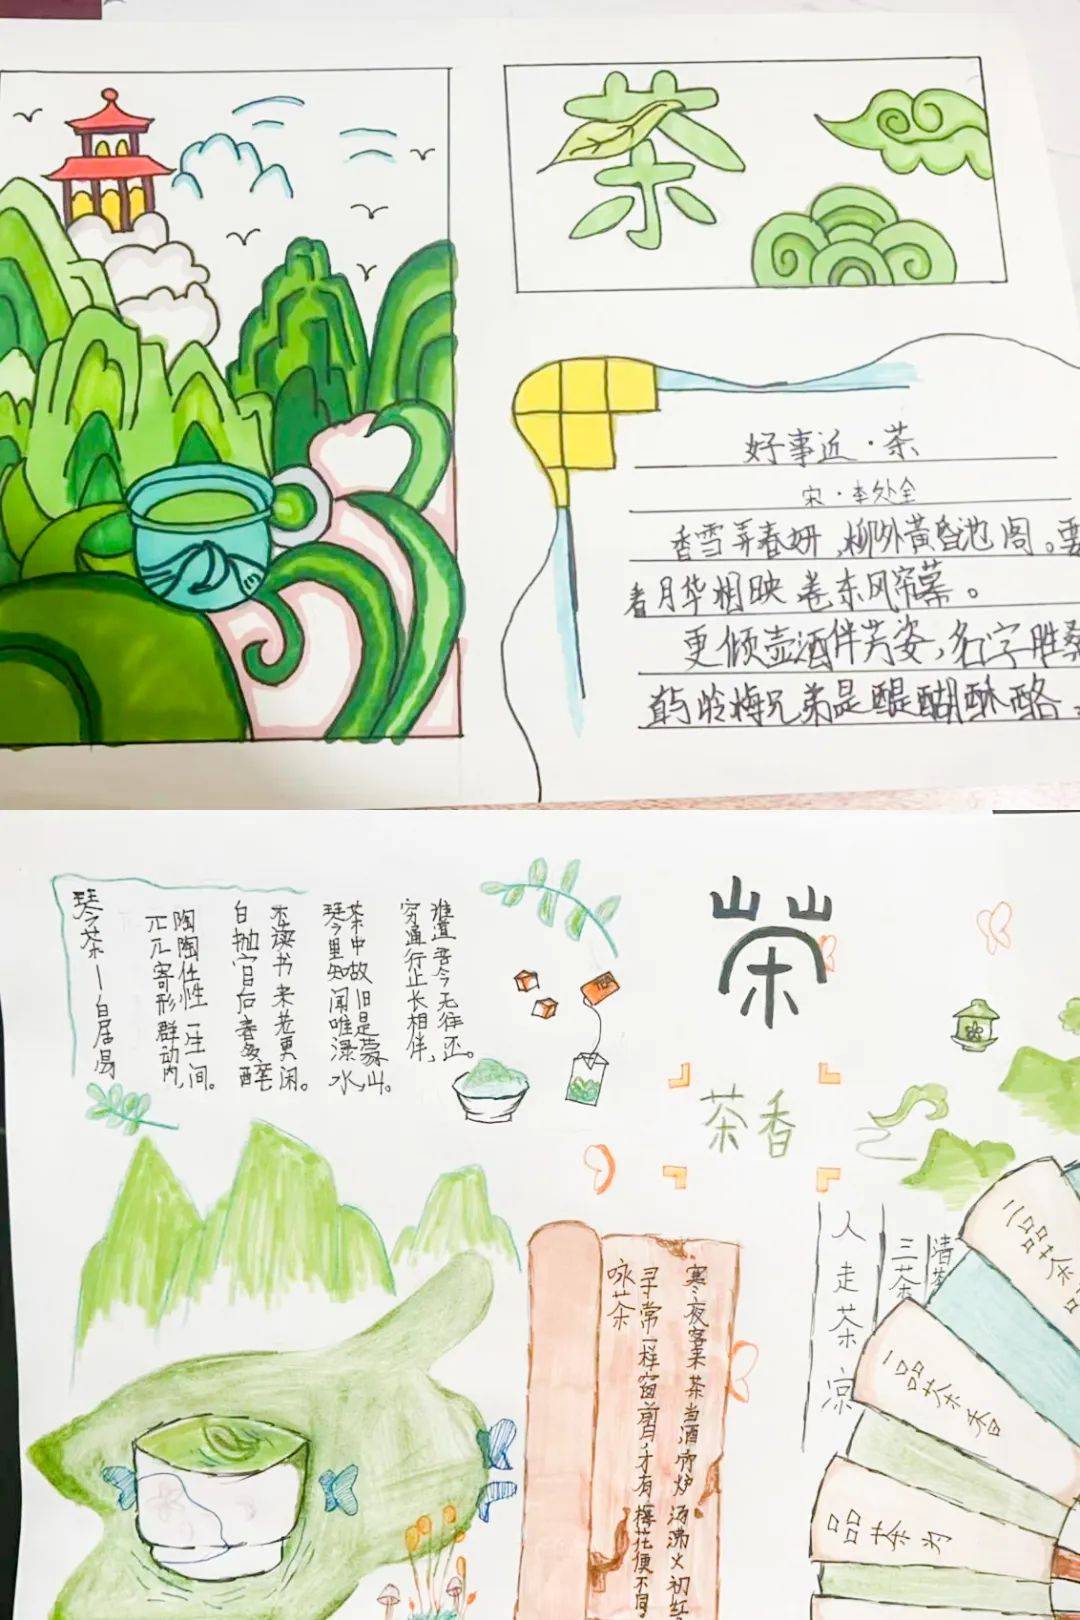 茶
好事近·茶
宋·李处全
香雪弄春妍,柳外黄昏池阁。要
看月华相映卷东风帘幕。
更倾壶酒伴芳姿,名字胜桑
岭梅兄弟是醍醐酥酪
琴茶一白居易
兀兀寄形群动内,
陶陶任性一生间。
自抛官后春多醉
不读书来老更闲。
琴里知闻唯渌水,
茶中故旧是蒙山。
穷通行止长相伴,
谁道吾今无往还。
TEA
茶
茶香
咏茶
寒夜客来茶当酒 炉汤沸火初红
寻常一样窗前月才有梅花便不同
人走茶凉
三茶
清茶
二品茶
一品茶香
品茶为